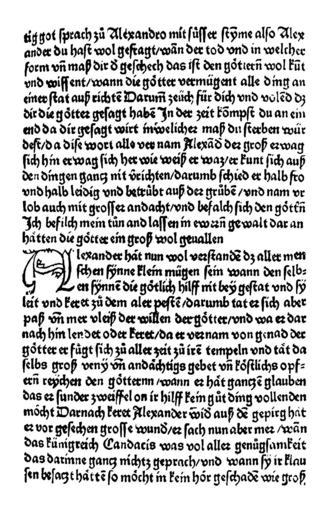 tig got sprach zů Alexandro mit süsser stÿme also Alex
ander du hast wol gefragt/wañ der tod vnd in welcher
form vñ maß dir d̄ geschech das ist den göttern wol kūt
vnd wissent/wann die götter vermügent alle ding an
einer stat auß richtē Darum̄ zeüch für dich vnd volēd dz
dir die götter gesagt habē In der zeit kōmpst du an ein
end da dir gesagt wirt in wölicher maß du sterben wür
dest/da dise wort alle ver nam Alexād̄ der groß erwag
sich hin er wag sich her wie weiß er waz/er kunt sich auß
den dingen gancz nit v̄richten/darumb schied er halb fro
vnd halb leidig vnd betrübt auß der grůbē/vnd nam vr
lob auch mit grosser andacht/vnd befalch sich den göttñ
Ich befilch mein tůn and lassen in ewern gewalt dar an
hātten die götter ein groß wol geuallen
Alexander hāt nun wol verstandē dz aller men
schen sÿnne klein mügen sein wann den selb-
en sÿnnē die götlich hilff mit bey gestat vnd sy
leit vnd keret zů dem aler pestē/darumb tat er sich aber
paß vñ mer vleiß der willen der götter/vnd wa er dar
nach hin lendet oder keret/da er vernam von genad der
götter er fügt sich zů aller zeit zů irē tempeln vnd tāt da
selbs groß veny vñ andāchtigs gebet vñ köstlichs opf-
ern reychen den götternn/wann er hāt ganczē glauben
das er sunder zweiffel on ir hilff kein gůt ding vollenden
möcht Darnach keret Alexander wid̄ auß dē gepirg hāt
er vor gesechen grosse wund̄/er sach nun aber mer/wañ
das künigreich Candacis was vol aller genügsamkeit
das darinne gancz nichtz geprach/vnd wann sy ir klau
sen besaczt hāttē so möcht in kein hör geschadē wie groß